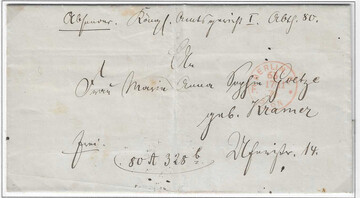 Absender. Königl. Amtsgericht I. Abth. 80.
An
Frau Marie Anna Sophie Goetze
geb. Kramer
frei. Uferstr. 14.
80 A 328
BERLIN